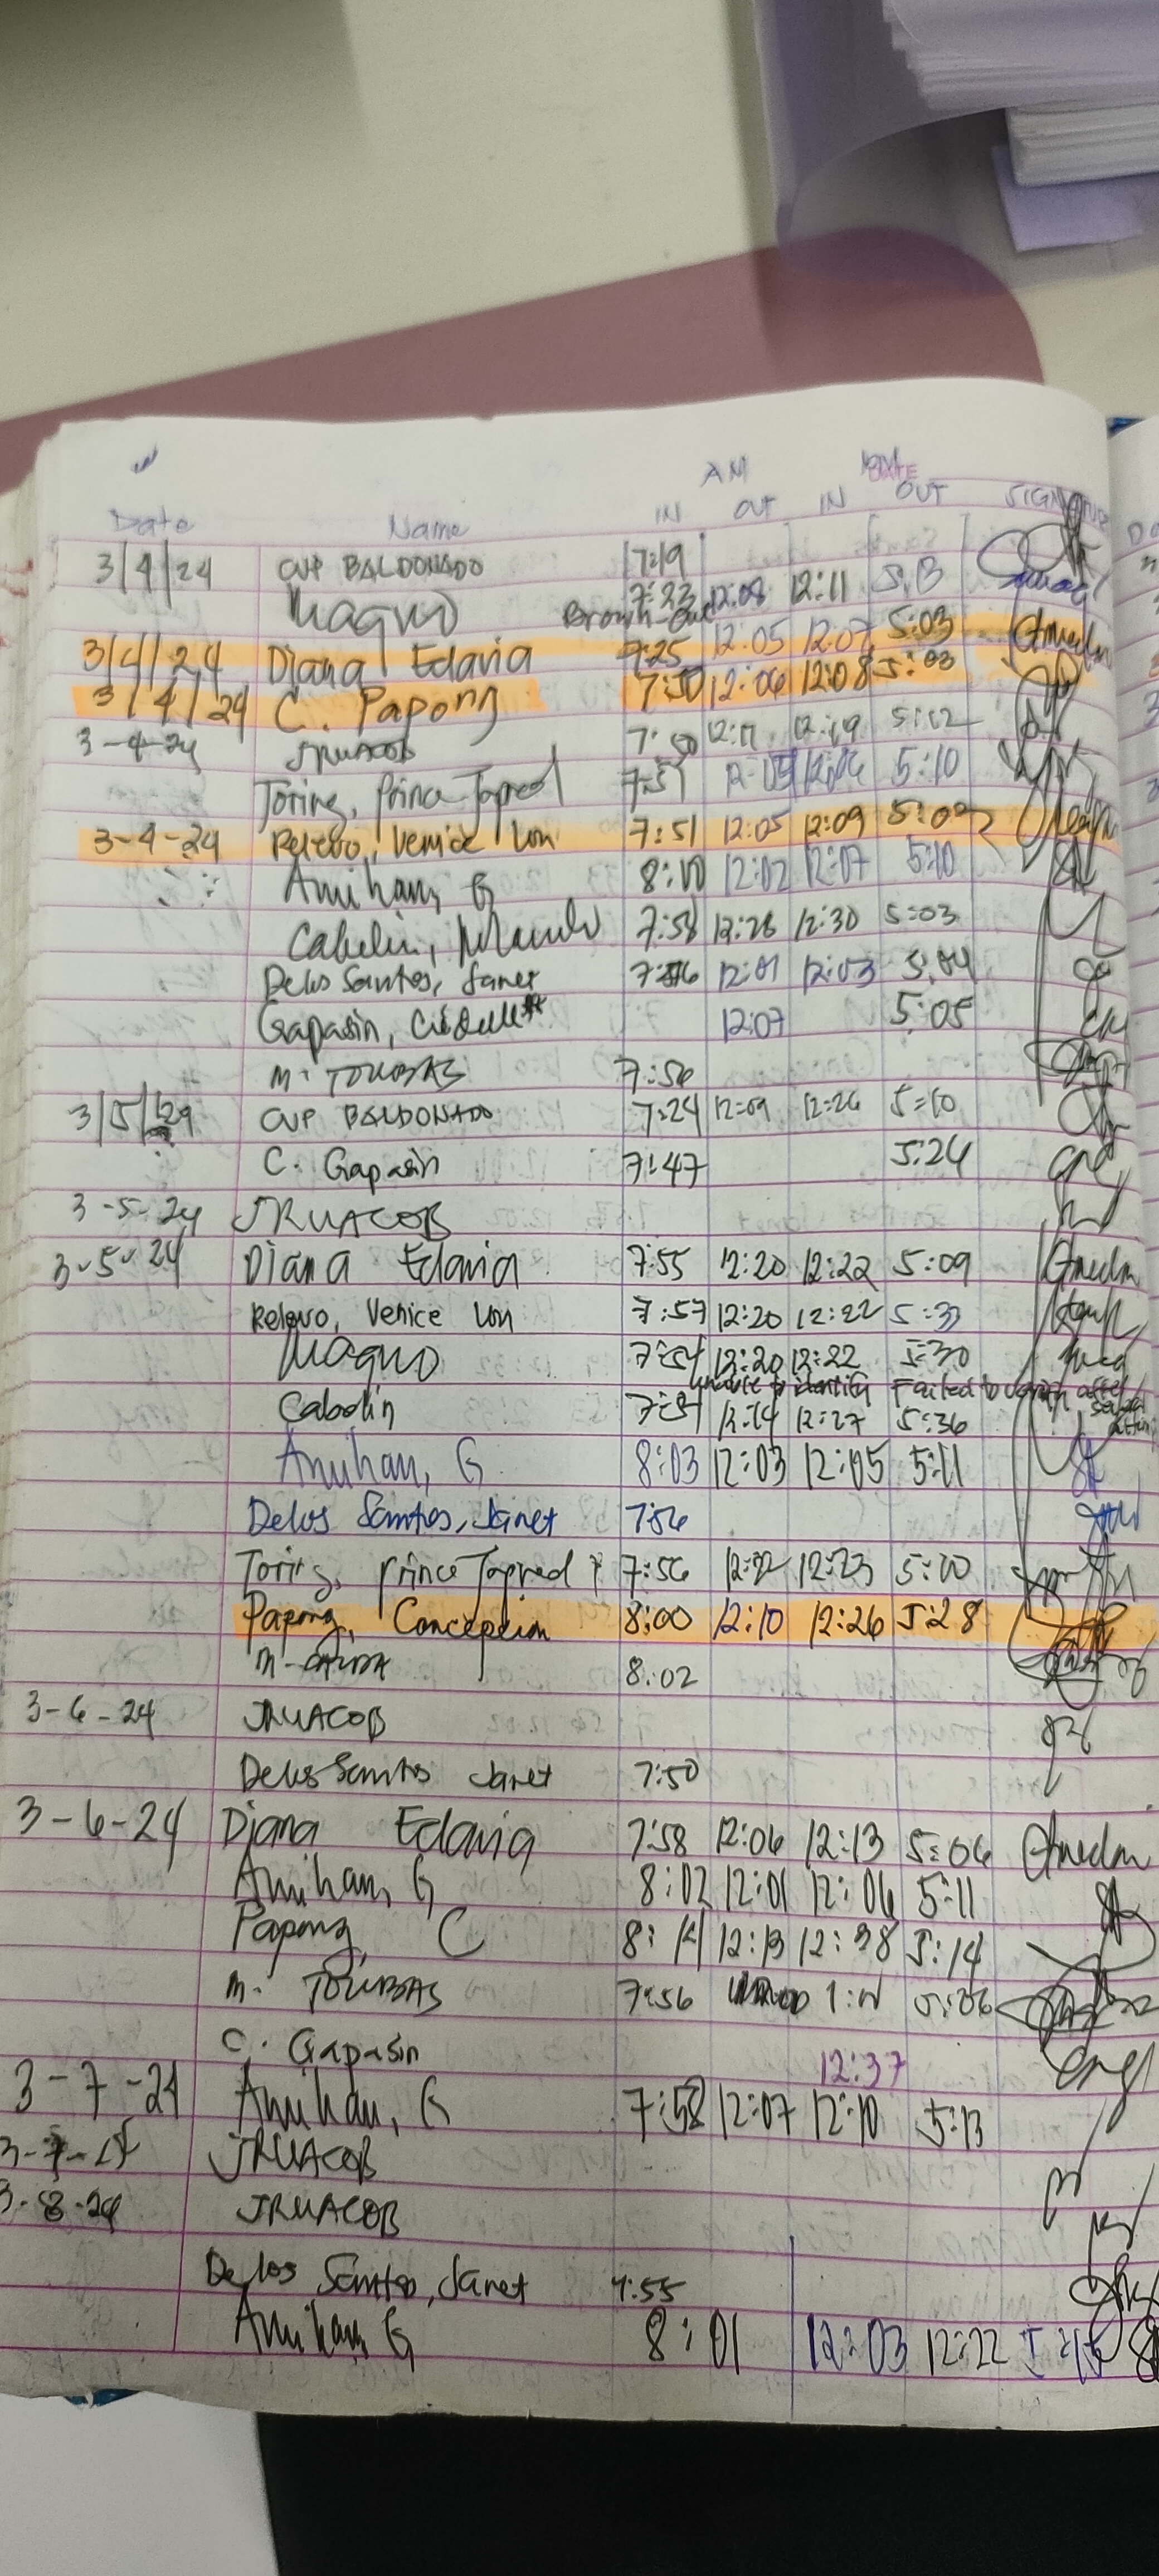 AM PM DATE
Date Name IN OUT IN OUT
3/4/24 CVP BALDONADO 7:19
Magno 7:23 12:08 12:11 5:13
Brown-out
3/4/24 Diana Edavia 7:25 12:05 12:07 5:03
3/4/24 C. Papong 7:50 12:06 12:08 5:03
3-4-24 JRUACOB 7:50 12:17 12:19 5:12
Toring, Prince Japred 7:51 12:06 5:10
3-4-24 Relevo, Venice Lon 7:51 12:05 12:09 5:09
Amihan, G 8:00 12:02 12:07 5:10
Cabelin, 7:58 12:28 12:30 5:03
Delos Santos, Janet 12:01 12:03 5:04
Gapasin, 12:07 5:05
M. TORIBAS 7:56
3/5/24 CVP BALDONADO 7:24 12:09 12:26 5:10
C. Gapasin 7:47 5:24
3-5-24 JRUACOB
3-5-24 Diana Edavia 7:55 12:20 12:22 5:09
Relevo, Venice Lon 7:57 12:20 12:22 5:33
Magno 7:54 12:20 12:22 5:30
unable to identify Failed to verify after several
Cabelin 12:27 5:36
Amihan, G 8:03 12:03 12:05 5:11
Delos Santos, Janet 7:56
Toring, Prince Japred P 7:56 12:22 12:23 5:20
Papong, Concepcion 8:00 12:10 12:26 5:28
8:02
3-6-24 JRUACOB
Delos Santos Janet 7:50
3-6-24 Diana Edavia 7:58 12:06 12:13 5:06
Amihan, G 8:02 12:01 12:06 5:11
Papong, C 8:14 12:13 12:38 5:14
M. TORIBAS 7:56 5:06
C. Gapasin 12:37
3-7-24 Amihan, G 7:58 12:07 12:10 5:13
3-7-24 JRUACOB
3-8-24 JRUACOB
Delos Santos, Janet 7:55
Amihan, G 8:01 12:03 12:22 5:15